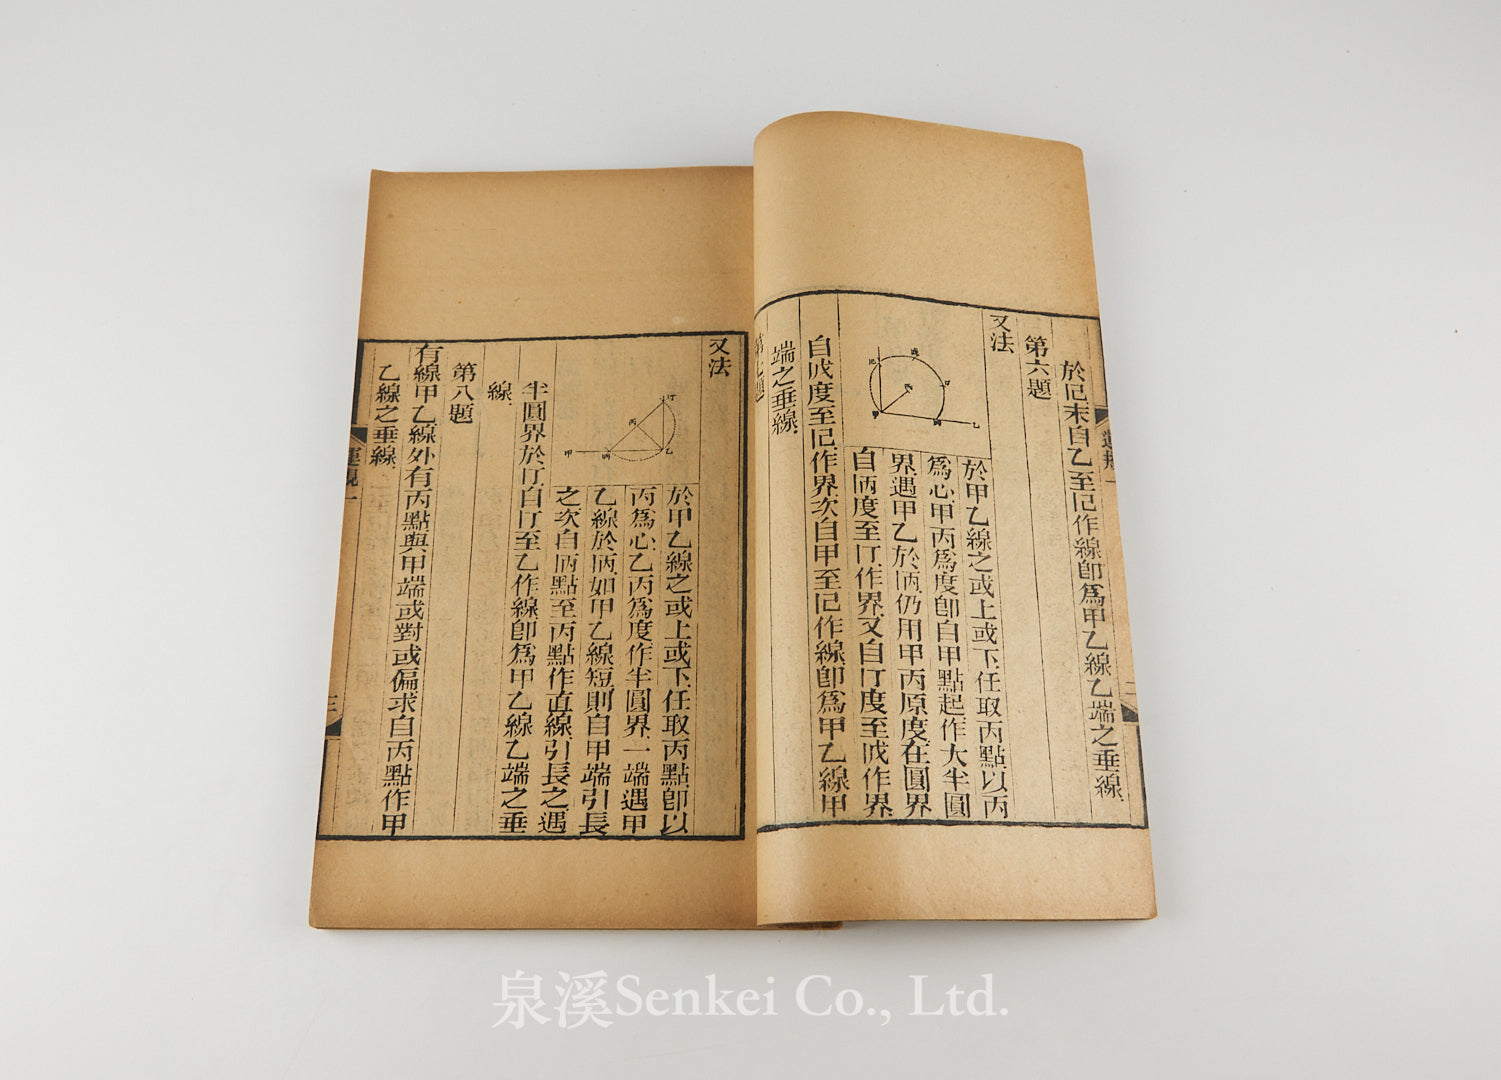 於 末自乙至 作線卽為甲乙線乙端之垂線
第六題
又法
於甲乙線之或上或下任取丙點以丙
為心甲丙為度卽自甲點起作大半圓
界遇甲乙於 仍用甲丙原度在圓界
自 度至 作界又自 度至 作界
自 度至 作界次自甲至 作線卽為甲乙線甲
端之垂線
第七題
又法
於甲乙線之或上或下任取丙點卽以
丙為心乙丙為度作半圓界一端遇甲
乙線於 如甲乙線短則自甲端引長
之次自 點至丙點作直線引長之遇
半圓界於 自 至乙作線卽為甲乙線乙端之垂
線
第八題
有線甲乙線外有丙點與甲端或對或偏求自丙點作甲
乙線之垂線
泉溪Senkei Co., Ltd.